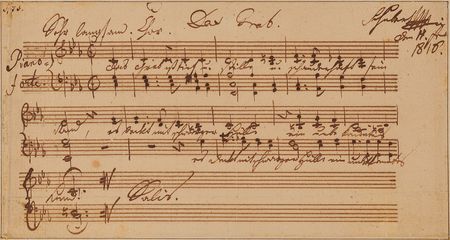 Sehr langsam. Chor. Das Grab. Schubert
den 11.
1816.
Piano-
forte. Das Grab ist tief u. stille u. schauderhaft sein
Rand, es deckt mit schwarzer Hülle ein unbekanntes
es deckt mit schwarzer Hülle ein unbekanntes
Land. Salis.